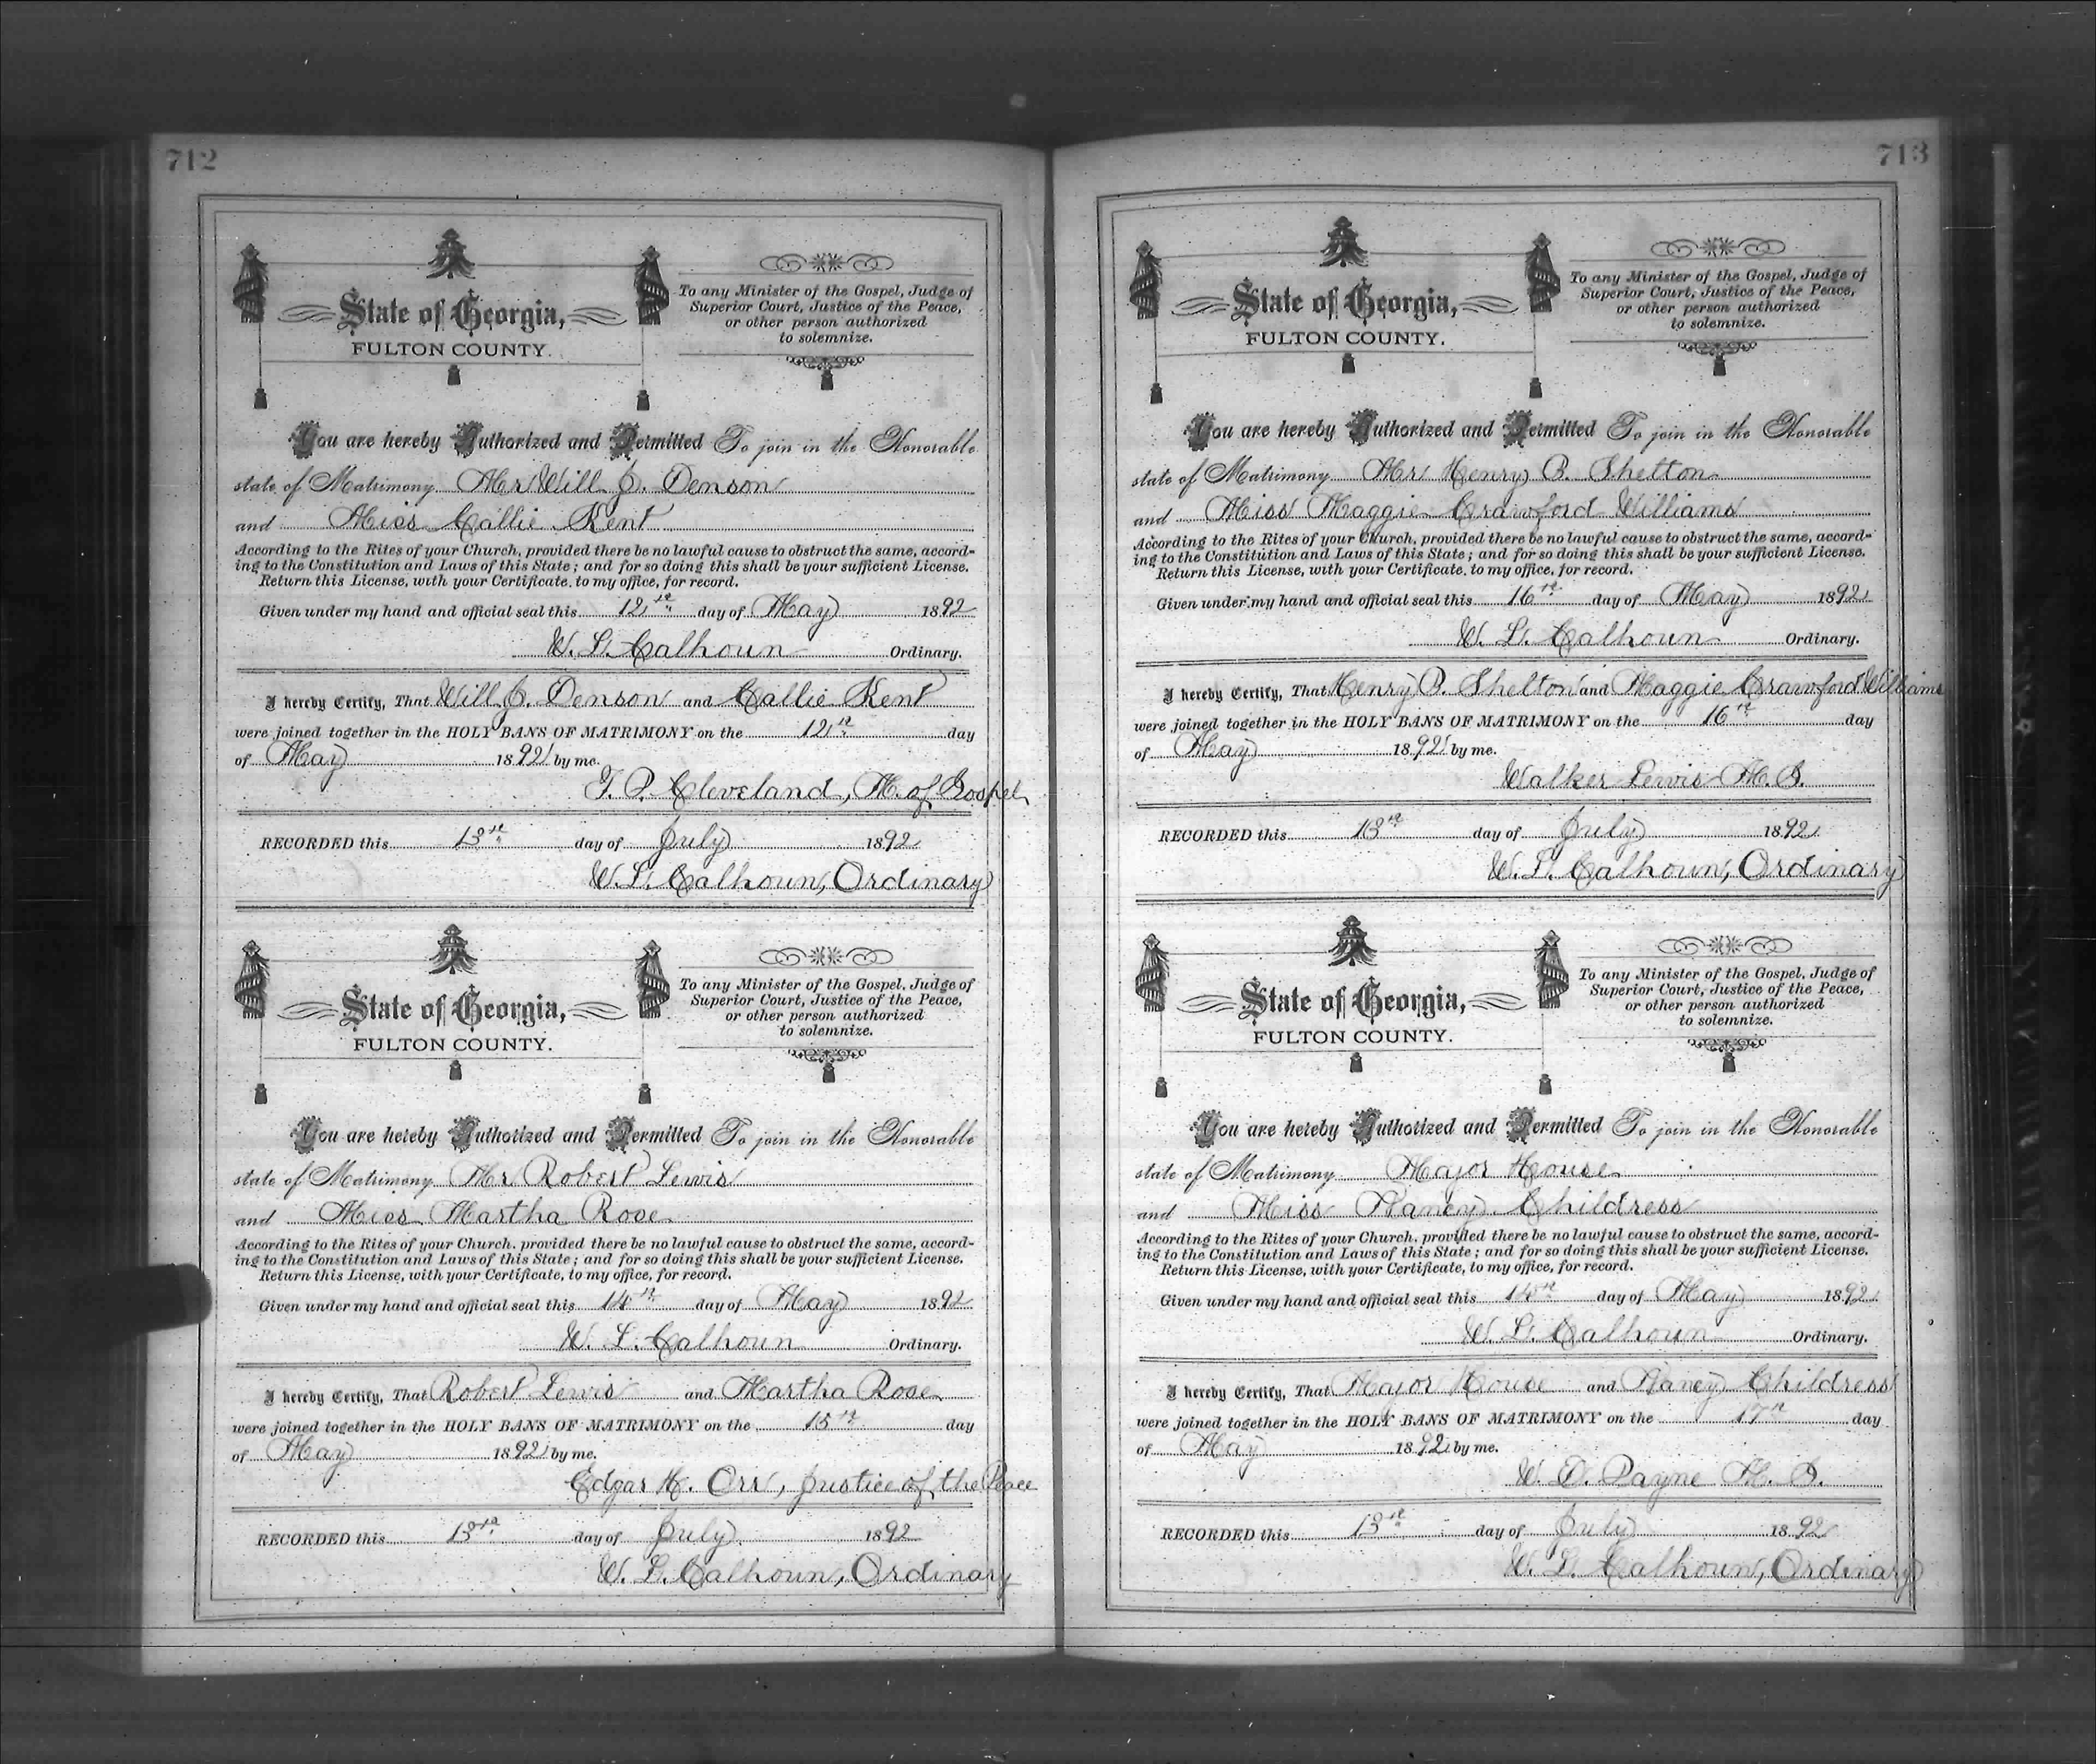 712
State of Georgia,
FULTON COUNTY.
To any Minister of the Gospel, Judge of
Superior Court, Justice of the Peace,
or other person authorized
to solemnize.
You are hereby Authorized and Permitted To join in the Honorable
state of Matrimony Mr Will J. Denson
and Miss Callie Kent
According to the Rites of your Church, provided there be no lawful cause to obstruct the same, accord-
ing to the Constitution and Laws of this State; and for so doing this shall be your sufficient License.
Return this License, with your Certificate, to my office, for record.
Given under my hand and official seal this 12th day of May 1892
W. L. Calhoun Ordinary.
I hereby Certify, That Will J. Denson and Callie Kent
were joined together in the HOLY BANS OF MATRIMONY on the 12th day
of May 1892 by me.
T. P. Cleveland, M. of Gospel
RECORDED this 13th day of July 1892
W. L. Calhoun, Ordinary
State of Georgia,
FULTON COUNTY.
To any Minister of the Gospel, Judge of
Superior Court, Justice of the Peace,
or other person authorized
to solemnize.
You are hereby Authorized and Permitted To join in the Honorable
state of Matrimony Mr Robert Lewis
and Miss Martha Rose
According to the Rites of your Church, provided there be no lawful cause to obstruct the same, accord-
ing to the Constitution and Laws of this State; and for so doing this shall be your sufficient License.
Return this License, with your Certificate, to my office, for record.
Given under my hand and official seal this 14th day of May 1892
W. L. Calhoun Ordinary.
I hereby Certify, That Robert Lewis and Martha Rose
were joined together in the HOLY BANS OF MATRIMONY on the 15th day
of May 1892 by me.
Edgar H. Orr, Justice of the Peace
RECORDED this 13th day of July 1892
W. L. Calhoun, Ordinary
713
State of Georgia,
FULTON COUNTY.
To any Minister of the Gospel, Judge of
Superior Court, Justice of the Peace,
or other person authorized
to solemnize.
You are hereby Authorized and Permitted To join in the Honorable
state of Matrimony Mr Henry B. Shelton
and Miss Maggie Crawford Williams
According to the Rites of your Church, provided there be no lawful cause to obstruct the same, accord-
ing to the Constitution and Laws of this State; and for so doing this shall be your sufficient License.
Return this License, with your Certificate, to my office, for record.
Given under my hand and official seal this 16th day of May 1892
W. L. Calhoun Ordinary.
I hereby Certify, That Henry B. Shelton and Maggie Crawford Williams
were joined together in the HOLY BANS OF MATRIMONY on the 16th day
of May 1892 by me.
Walker Lewis M. G.
RECORDED this 13th day of July 1892
W. L. Calhoun, Ordinary
State of Georgia,
FULTON COUNTY.
To any Minister of the Gospel, Judge of
Superior Court, Justice of the Peace,
or other person authorized
to solemnize.
You are hereby Authorized and Permitted To join in the Honorable
state of Matrimony Major House
and Miss Nancy Childress
According to the Rites of your Church, provided there be no lawful cause to obstruct the same, accord-
ing to the Constitution and Laws of this State; and for so doing this shall be your sufficient License.
Return this License, with your Certificate, to my office, for record.
Given under my hand and official seal this 14th day of May 1892
W. L. Calhoun Ordinary.
I hereby Certify, That Major House and Nancy Childress
were joined together in the HOLY BANS OF MATRIMONY on the 17th day
of May 1892 by me.
W. D. Payne M. G.
RECORDED this 13th day of July 1892
W. L. Calhoun, Ordinary